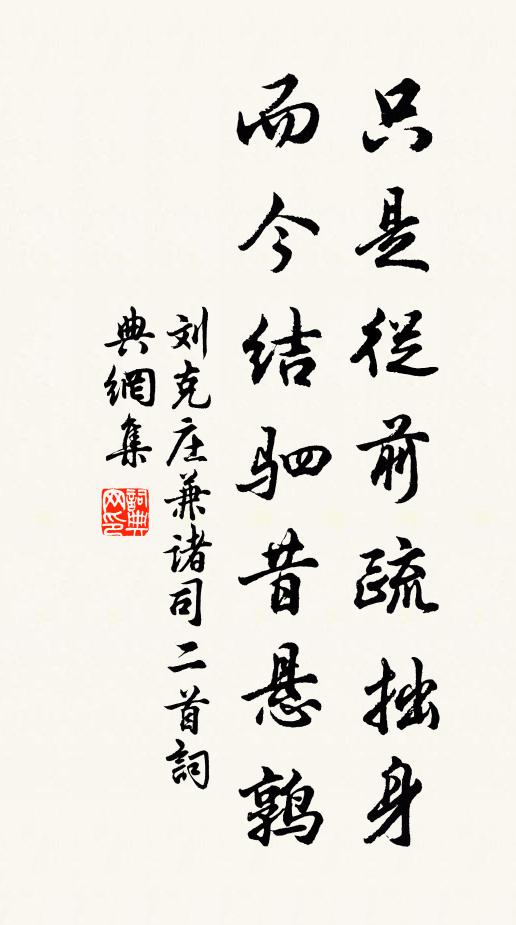 只是從前疏拙身
而今结驷昔悬鹑
刘克庄兼诸司二首詞
典網集
詞典网印